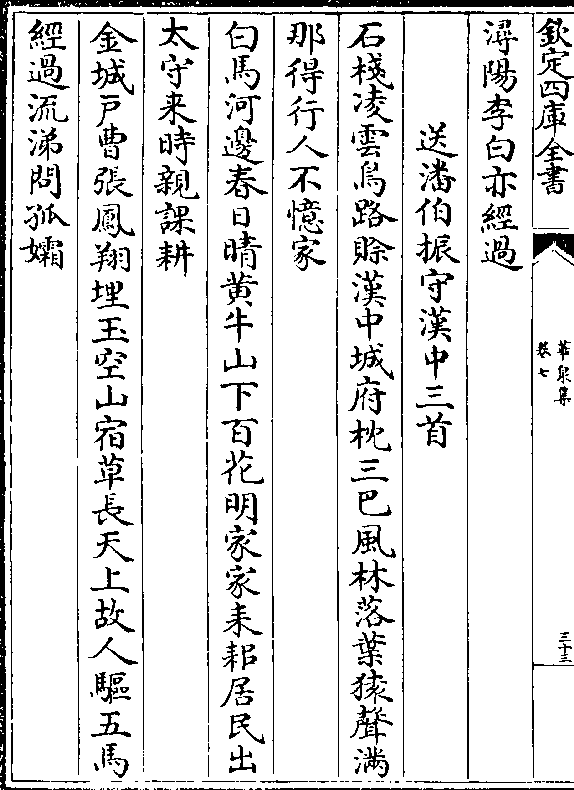 欽定四庫全書
華泉集
卷七
三十三
潯陽李白亦經過
送潘伯振守漢中三首
石棧凌雲鳥路賖漢中城府枕三巴風林落葉猿聲滿
那得行人不憶家
白馬河邊春日晴黄牛山下百花明家家耒耜居民出
太守来時親課耕
金城戸曹張鳳翔埋玉空山宿草長天上故人驅五馬
經過流涕問孤孀